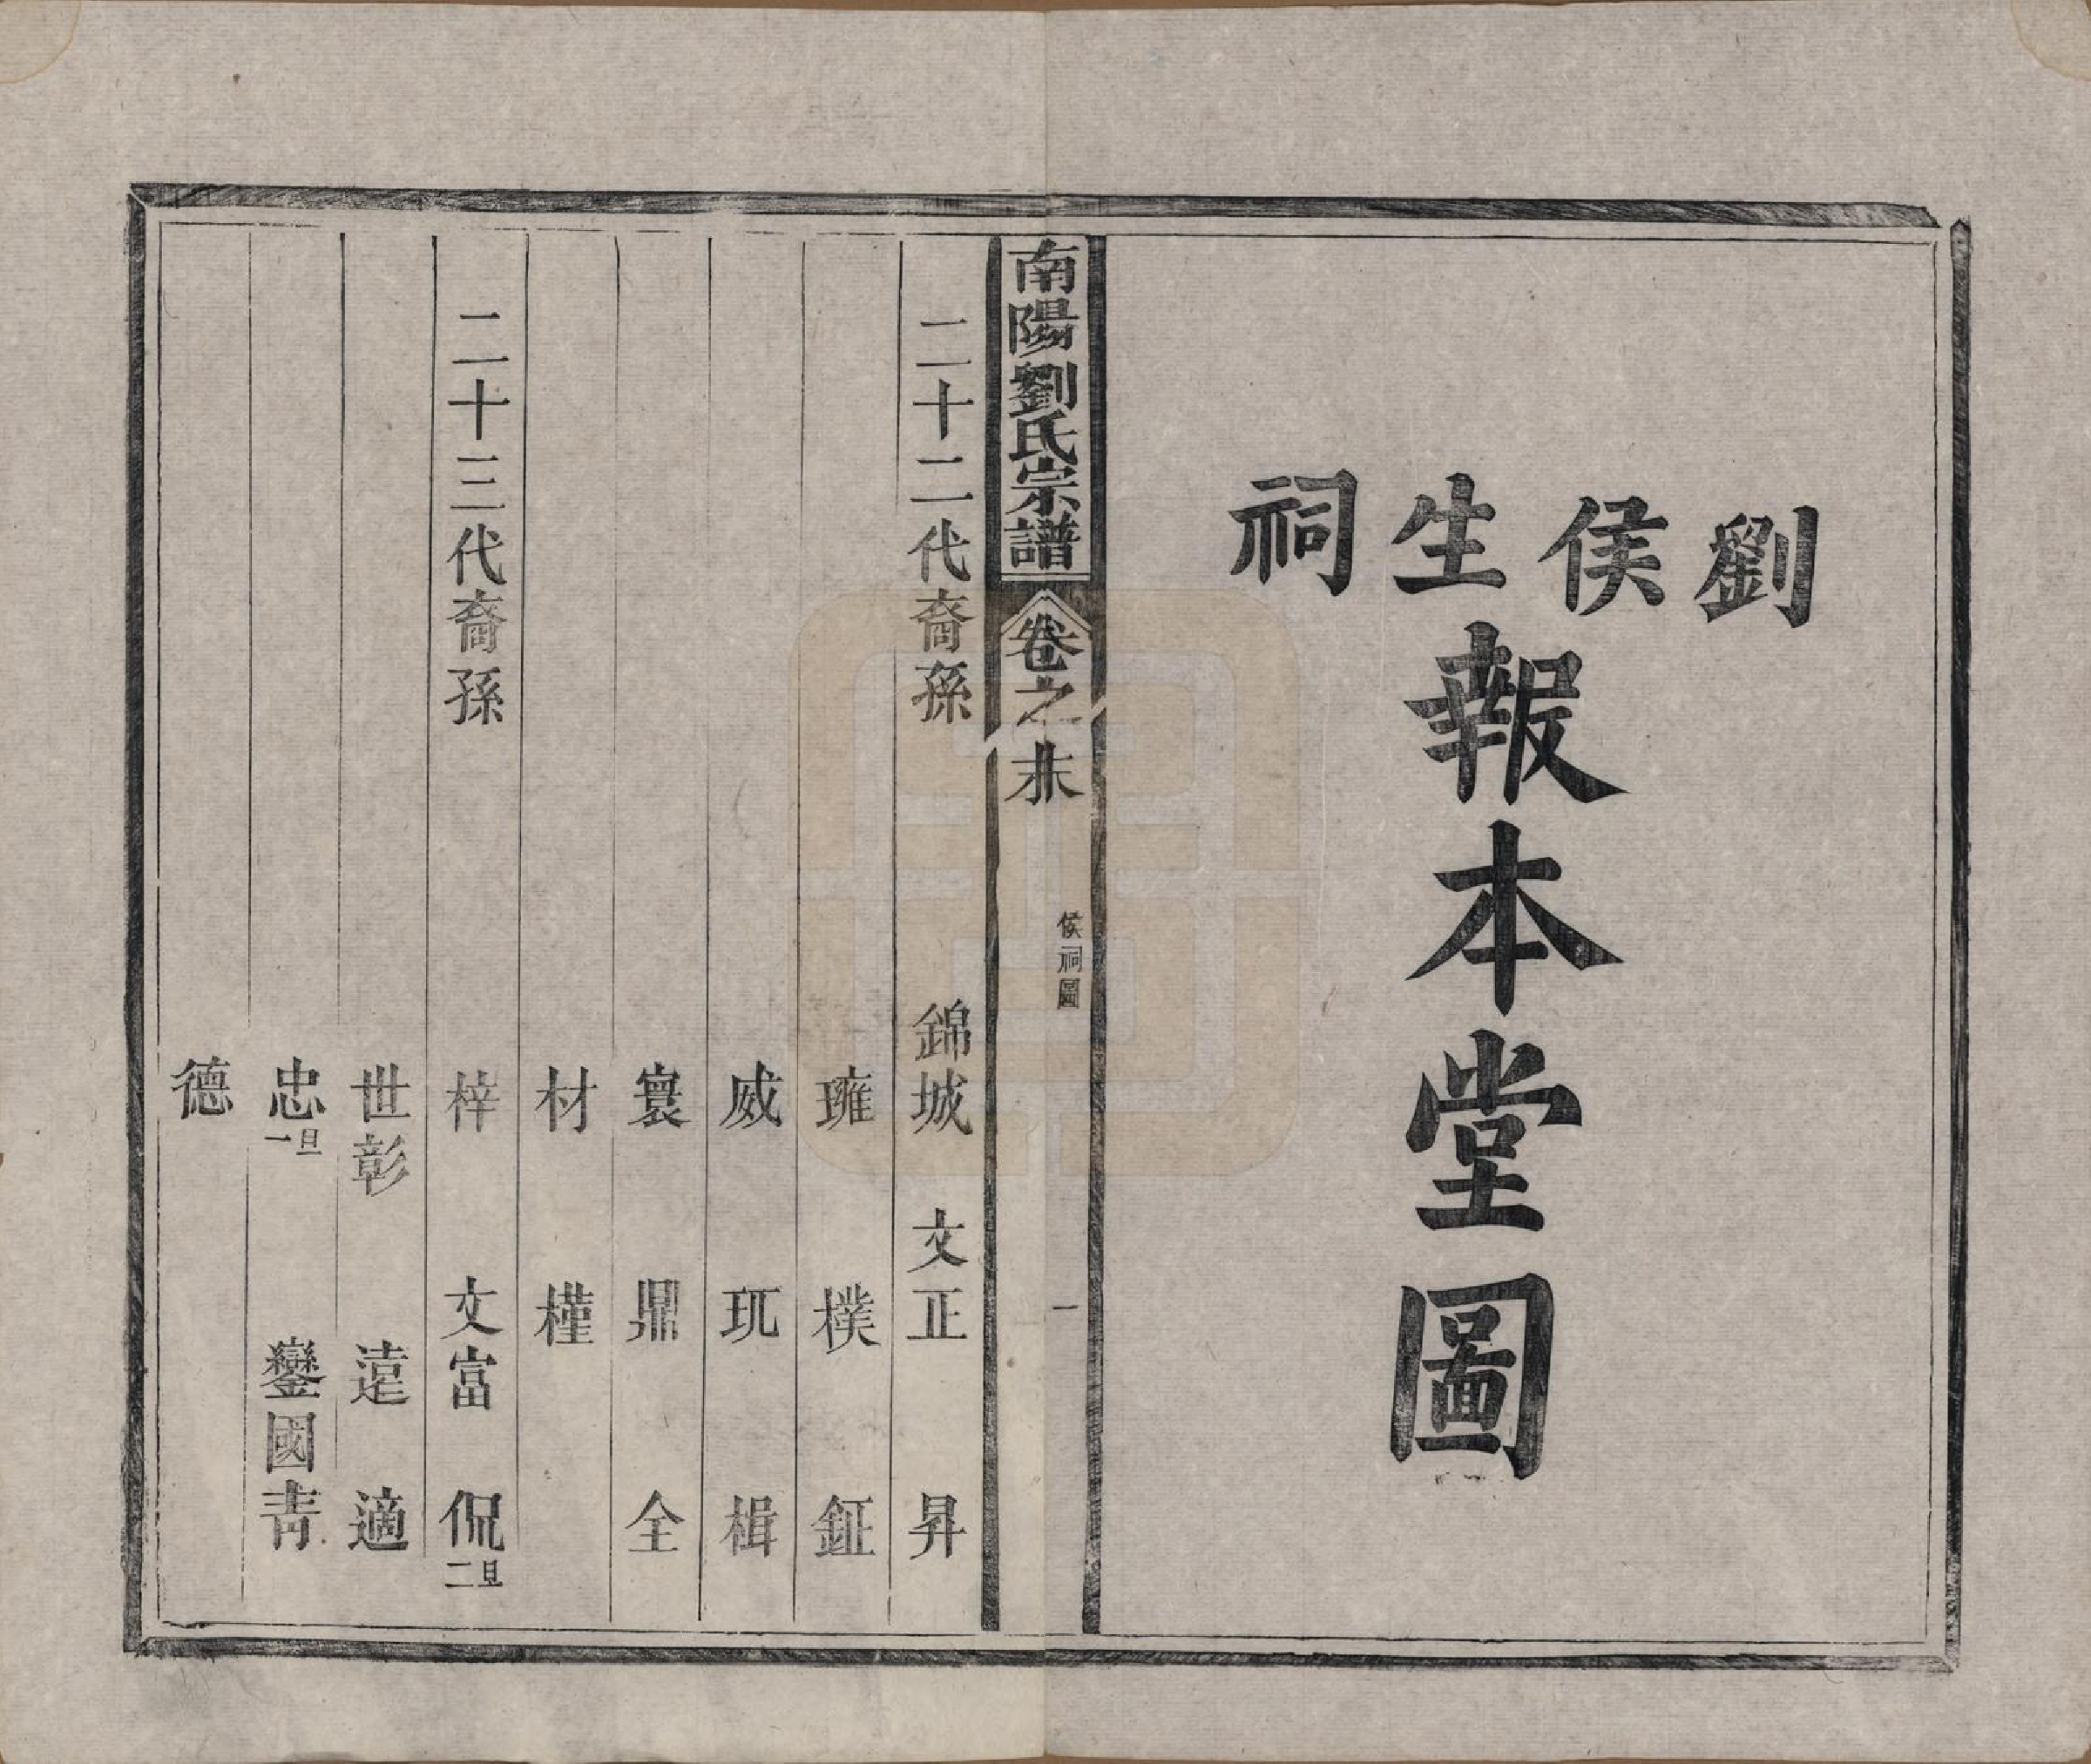 劉侯生祠
報本堂圖
南陽劉氏宗譜 卷之末 侯祠圖 一
二十二代裔孫 錦城 文正 昇
璀 樸 鉦
威 玩 楫
寰 鼎 全
材 槿
二十三代裔孫 梓 文富 侃旦二
世彰 遠 適
忠旦一 鑾國青
德